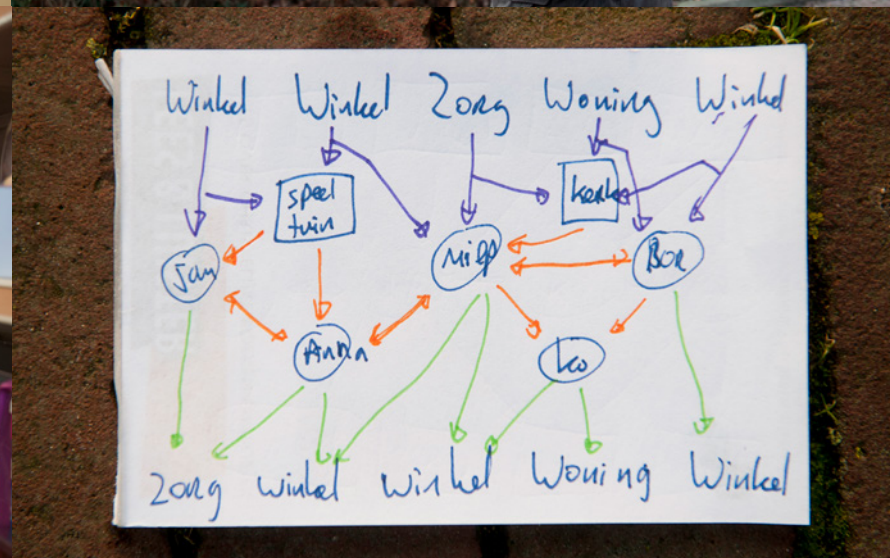 Winkel Winkel Zorg Woning Winkel
speel
tuin
kerk
Jan
Bor
Anna
Ko
Zorg Winkel Winkel Woning Winkel